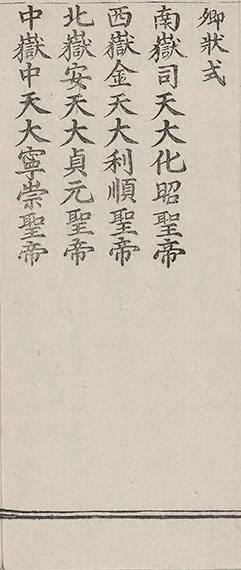 卿狀式
南嶽司天大化昭聖帝
西嶽金天大利順聖帝
北嶽安天大貞元聖帝
中嶽中天大寧崇聖帝